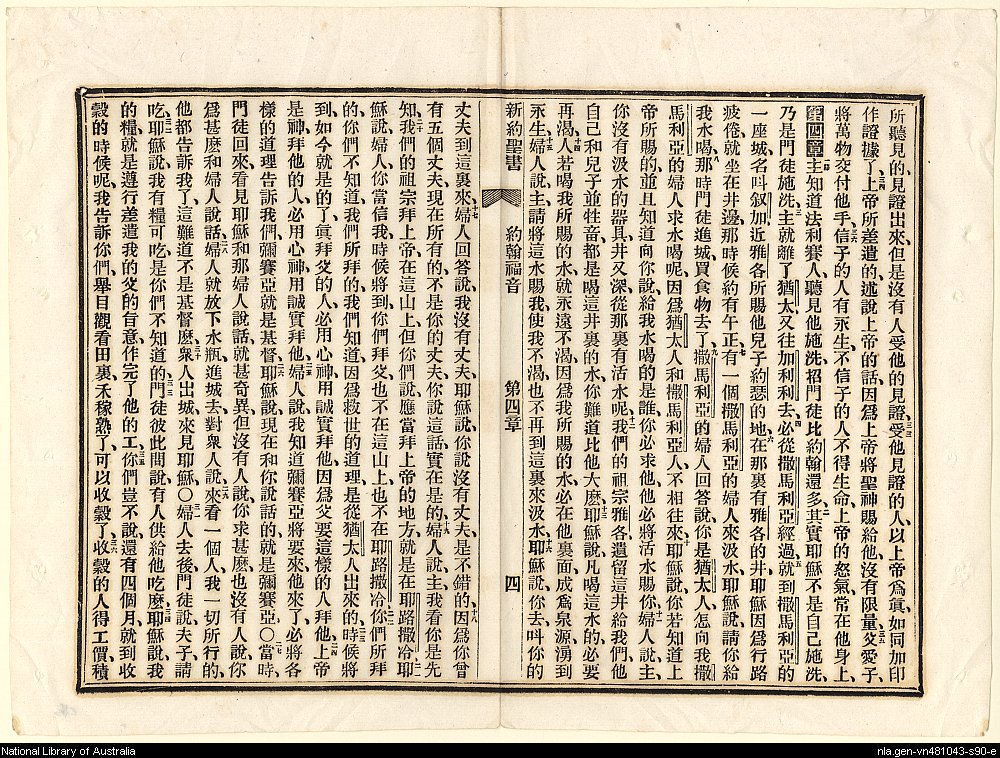 所聽見的見證出來、但是沒有人受他的見證、三三受他見證的人、以上帝爲眞、如同加印
作證據了、三四上帝所差遣的述說上帝的話、因爲上帝將聖神賜給他、沒有限量、三五父愛子、
將萬物交付他手、三六信子的人有永生、不信子的人不得生命、上帝的怒氣常在他身上、
第四章 一主知道法利賽人聽見他施洗招門徒比約翰還多、二其實耶穌不是自己施洗、
乃是門徒施洗、三主就離了猶太、又往加利利去、四必從撒馬利亞經過、五就到撒馬利亞的
一座城、名叫叙加、近雅各所賜他兒子約瑟的地、六在那裏有雅各的井、耶穌因爲行路
疲倦、就坐在井邊、那時候約有午正、七有一個撒馬利亞的婦人來汲水、耶穌說、請你給
我水喝、八那時門徒進城買食物去了、九撒馬利亞的婦人回答說、你是猶太人、怎向我撒
馬利亞的婦人求水喝呢、因爲猶太人和撒馬利亞人不相往來、十耶穌說、你若知道上
帝所賜的、並且知道向你說給我水喝的是誰、你必求他、他必將活水賜你、十一婦人說、主、
你沒有汲水的器具、井又深、從那裏有活水呢、十二我們的祖宗雅各遺留這井給我們、他
自己和兒子並牲畜都是喝這井裏的水、你難道比他大麽、十三耶穌說、凡喝這水的、必要
再渴、十四人若喝我所賜的水、就永遠不渴、因爲我所賜的水、必在他裏面成爲泉源、湧到
永生、十五婦人說、主、請將這水賜我、使我不渴、也不再到這裏來汲水、十六耶穌說、你去叫你的
新約聖書 約翰福音 第四章 四
丈夫到這裏來、十七婦人回答說、我沒有丈夫、耶穌說、你說沒有丈夫、是不錯的、十八因爲你曾
有五個丈夫、現在所有的、不是你的丈夫、你說這話實在是的、十九婦人說、主、我看你是先
知、二十我們的祖宗拜上帝在這山上、但你們說應當拜上帝的地方、就是在耶路撒冷、二一耶
穌說、婦人、你當信我、時候將到、你們拜父、也不在這山上、也不在耶路撒冷、二二你們所拜
的、你們不知道、我們所拜的、我們知道、因爲救世的道理、是從猶太人出來的、二三時候將
到、如今就是的了、眞拜父的人、必用心神用誠實拜他、因爲父要這樣的人拜他、二四上帝
是神、拜他的人、必用心神用誠實拜他、二五婦人說、我知道彌賽亞將要來、他來了、必將各
樣的道理告訴我們、彌賽亞就是基督、二六耶穌說、現在和你說話的就是彌賽亞○二七當時
門徒回來、看見耶穌和那婦人說話、就甚奇異、但沒有人說、你求甚麽、也沒有人說、你
爲甚麽和婦人說話、二八婦人就放下水瓶、進城去、對衆人說、二九來看一個人、我一切所行的、
他都告訴我了、這難道不是基督麽、三十衆人出城、來見耶穌○三一婦人去後、門徒說、夫子請
吃、三二耶穌說、我有糧可吃、是你們不知道的、三三門徒彼此間說、有人供給他吃麽、三四耶穌說、我
的糧、就是遵行差遣我的父的旨意、作完了他的工、三五你們豈不說、還有四個月就到收
穀的時候呢、我告訴你們、舉目觀看田裏、禾稼熟了、可以收穀了、三六收穀的人得工價、積
National Library of Australia
nla.gen-vn481043-s90-e